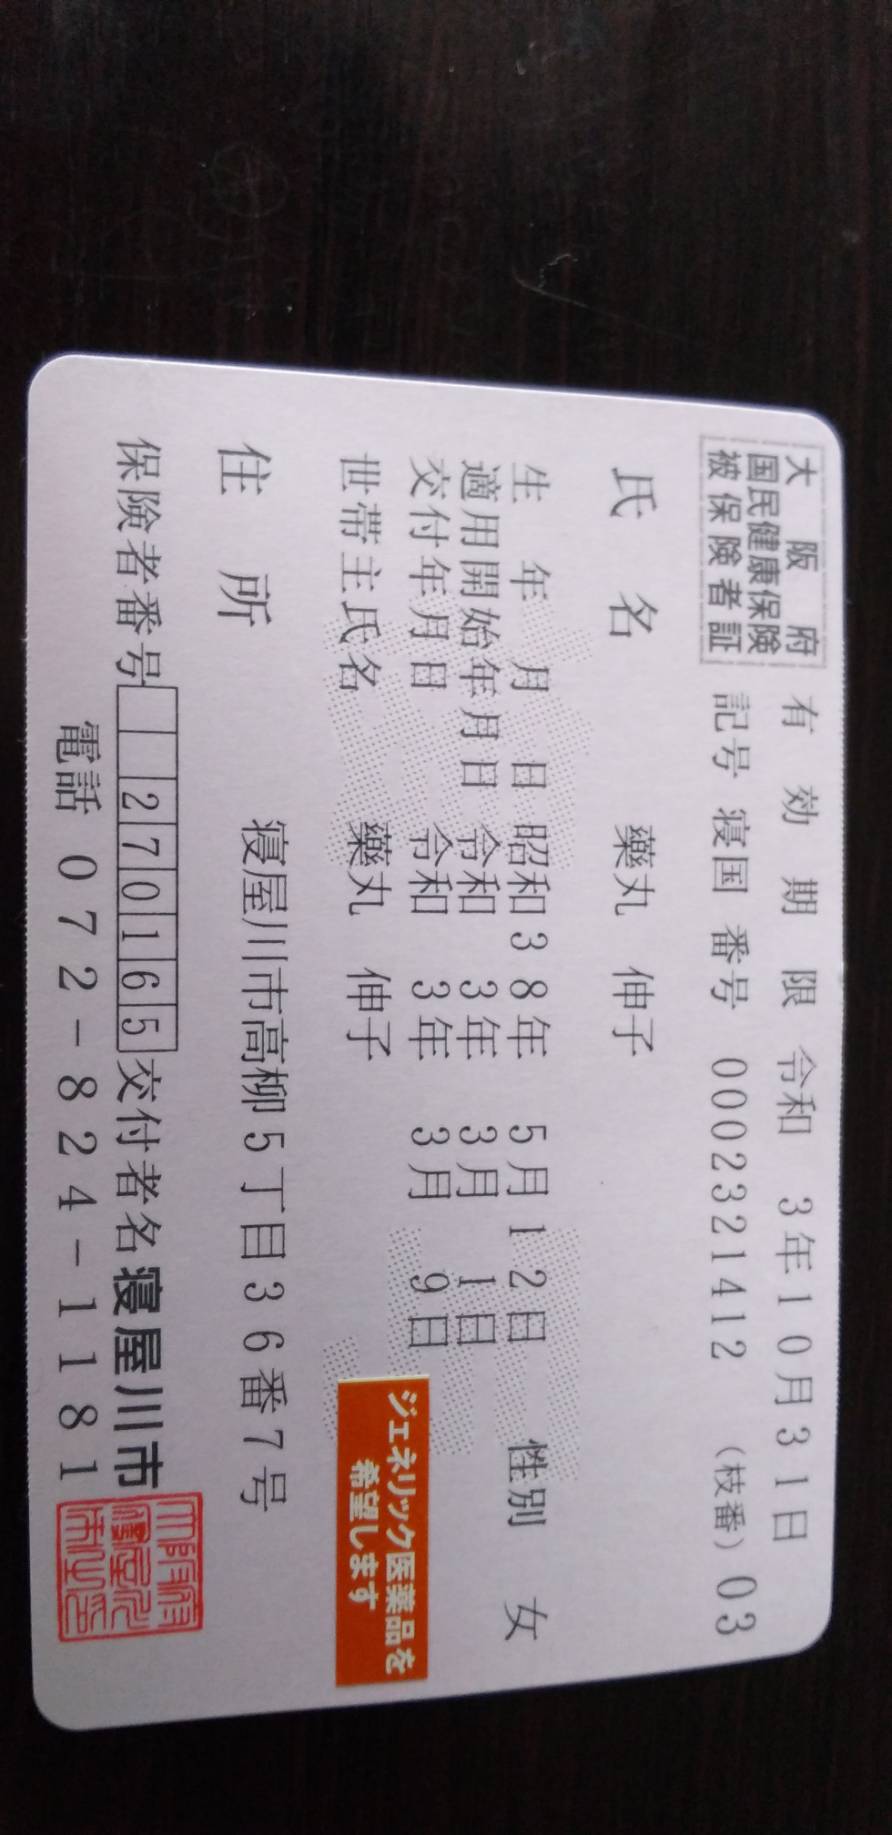 大阪府
国民健康保険
被保険者証
有効期限 令和 3年10月31日
記号 寝国 番号 0002321412 (枝番) 03
氏名 藥丸 伸子
生年月日 昭和38年 5月12日 性別 女
適用開始年月日 令和 3年 3月 1日
交付年月日 令和 3年 3月 9日
世帯主氏名 藥丸 伸子
ジェネリック医薬品を
希望します
住所 寝屋川市高柳5丁目36番7号
保険者番号 270165 交付者名 寝屋川市
電話 072-824-1181